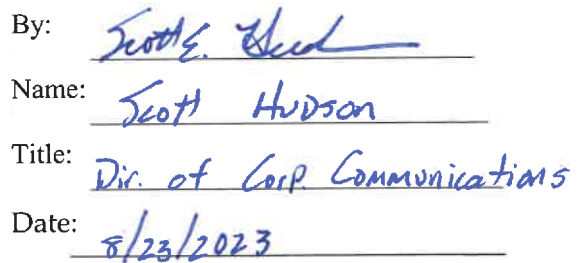 By: Scott E. Hudson
Name: Scott Hudson
Title: Dir. of Corp. Communications
Date: 8/23/2023